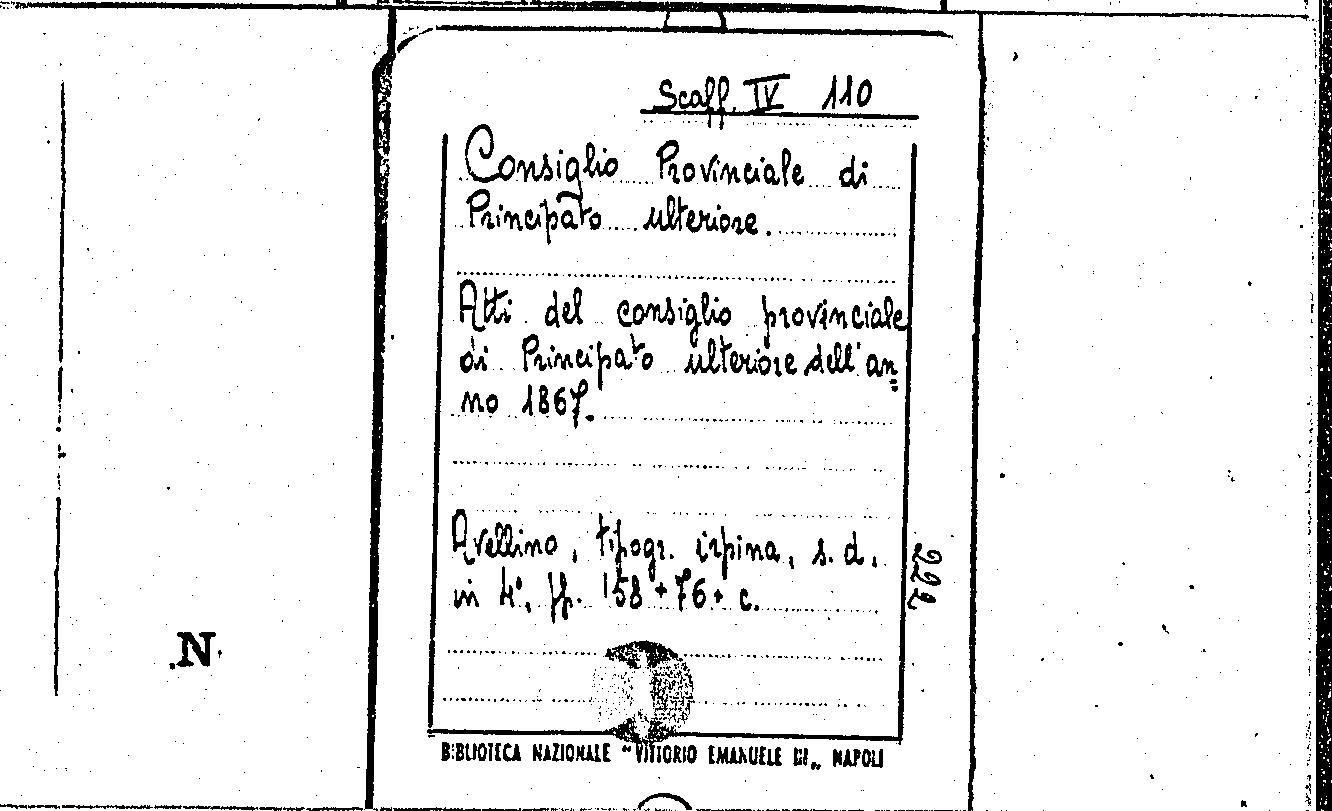 Scaff. IV 110
Consiglio Provinciale di
Principato ulteriore.
Atti del consiglio provinciale
di Principato ulteriore dell'an=
no 1867.
Avellino, tipogr. irpina, s. d.
in 4°, pp. 158 + 76 + c.
222
N
BIBLIOTECA NAZIONALE "VITTORIO EMANUELE III„ NAPOLI